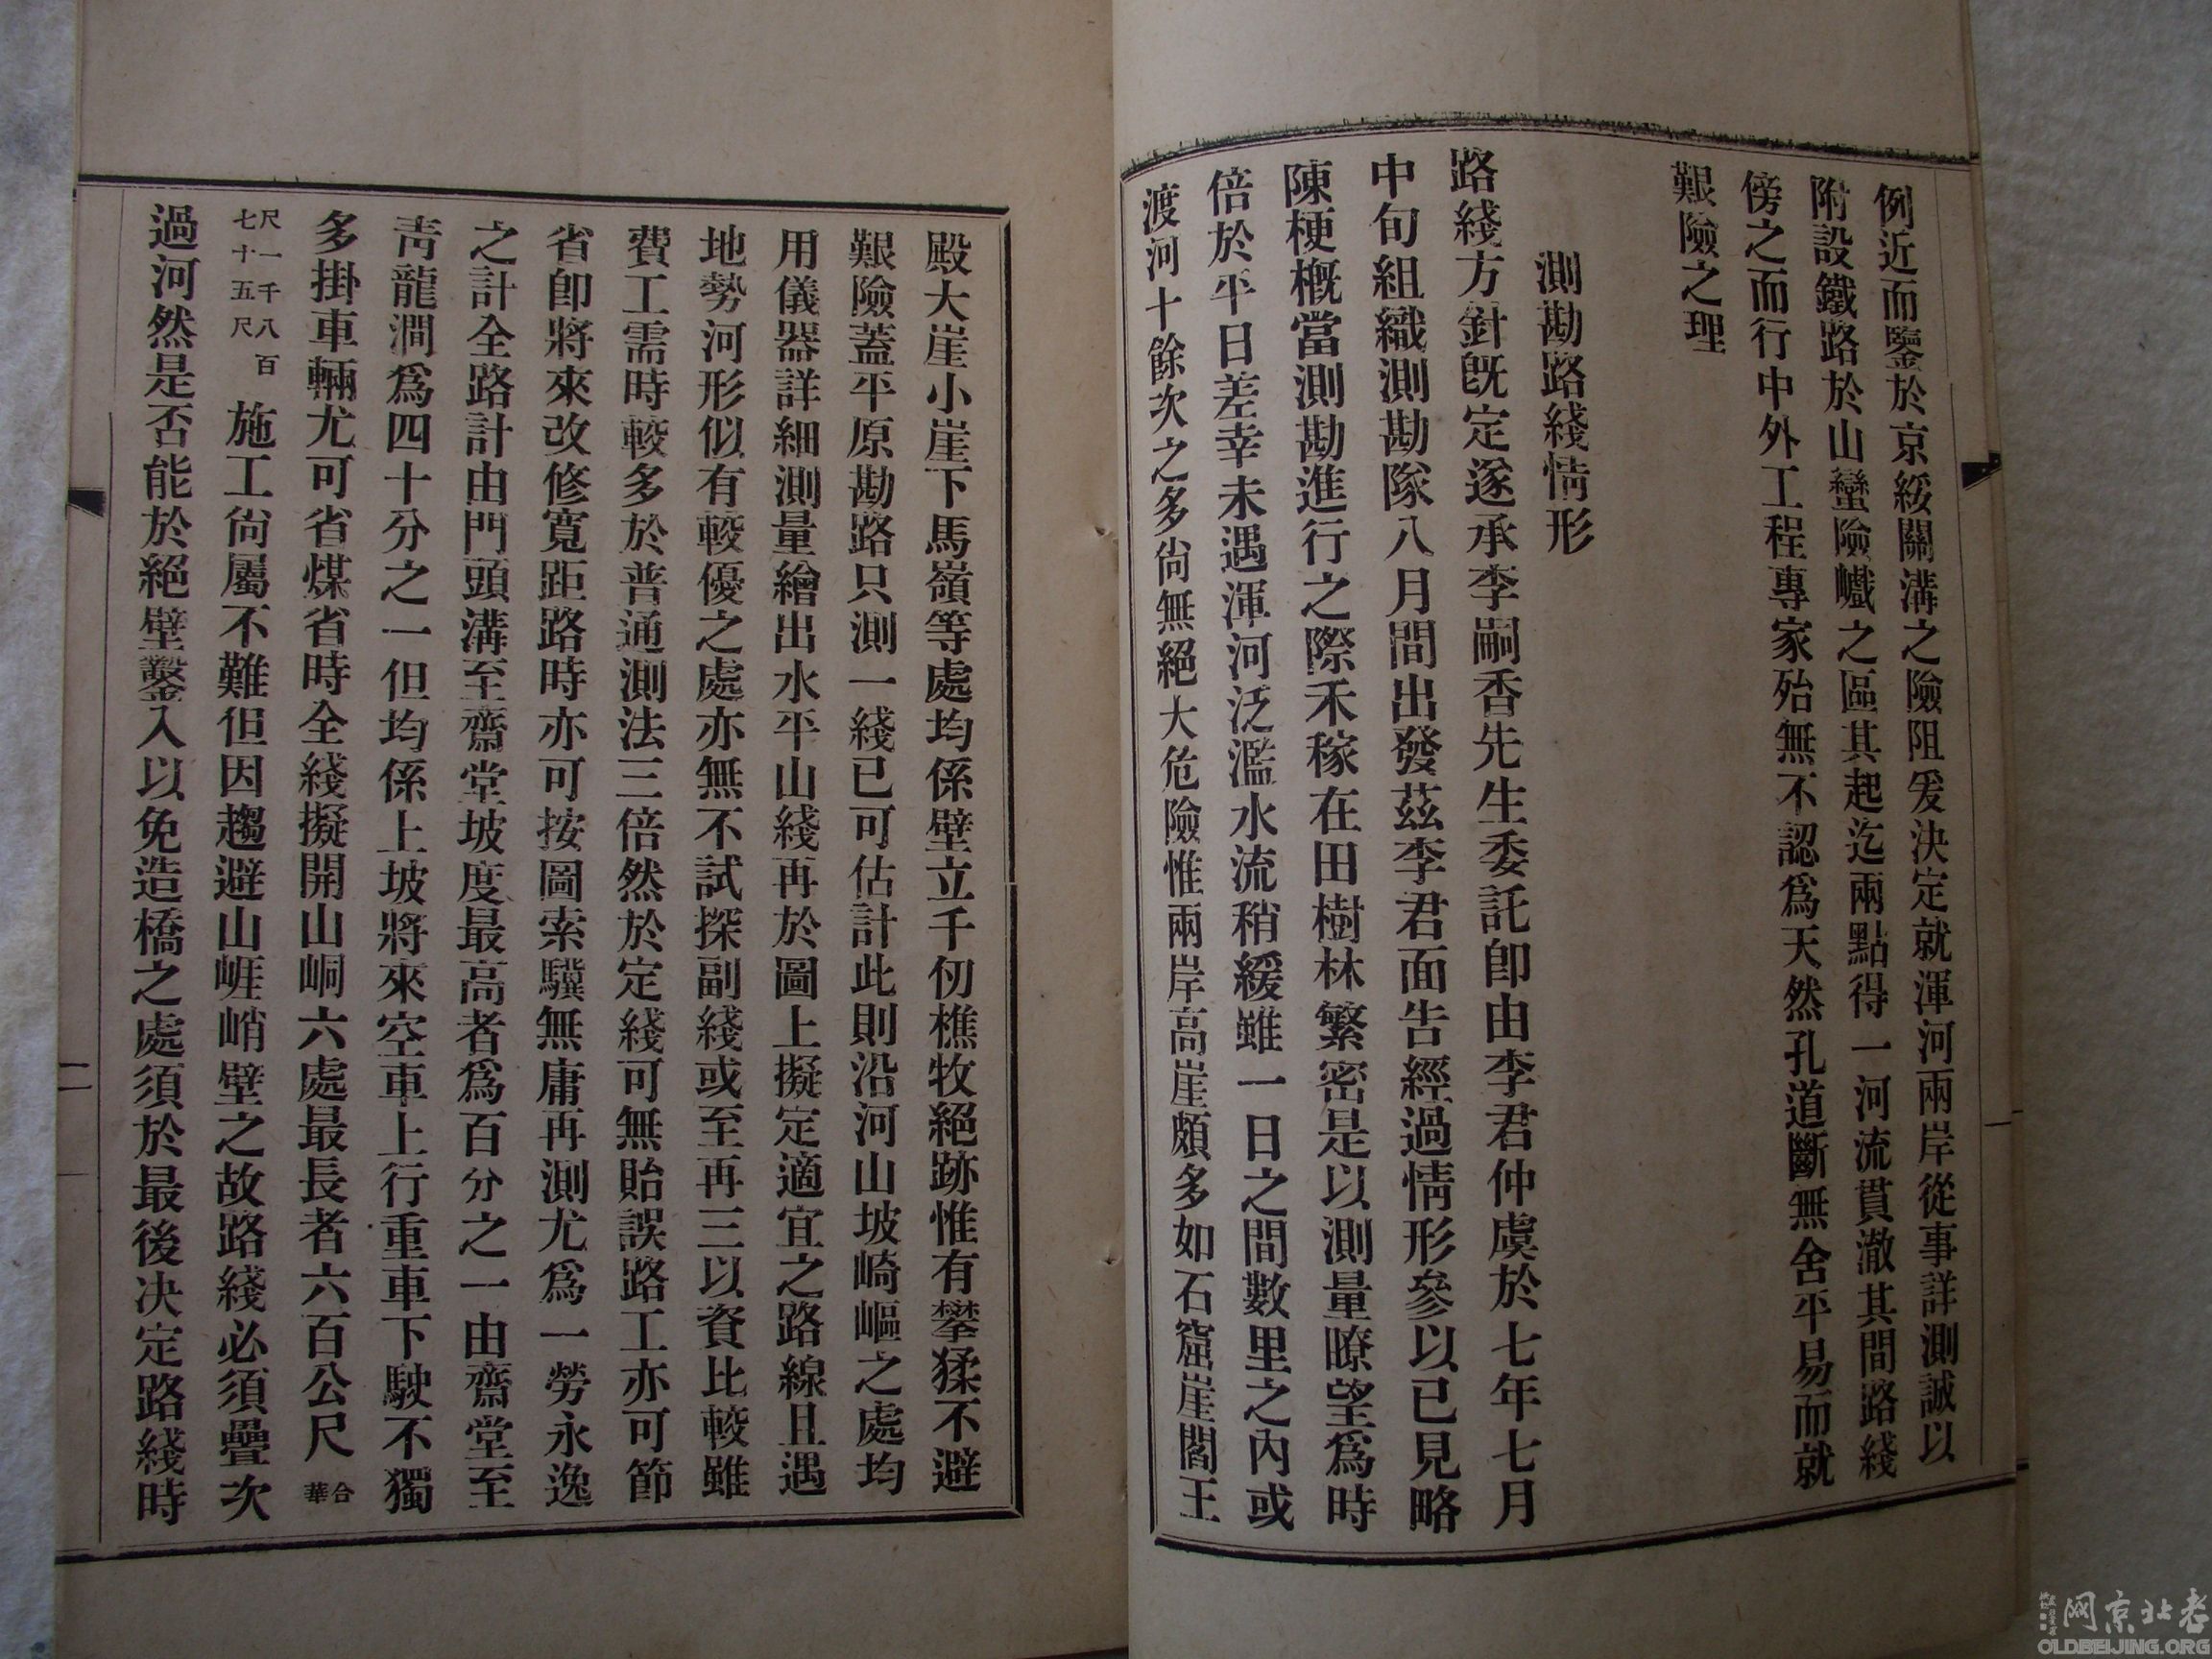 例近而鑒於京綏關溝之險阻爰決定就渾河兩岸從事詳測誠以
附設鐵路於山巒險巇之區其起迄兩點得一河流貫澈其間路綫
傍之而行中外工程專家殆無不認爲天然孔道斷無舍平易而就
艱險之理
測勘路綫情形
路綫方針旣定遂承李嗣香先生委託卽由李君仲虞於七年七月
中旬組織測勘隊八月間出發茲李君面告經過情形參以已見略
陳梗概當測勘進行之際禾稼在田樹林繁密是以測量暸望爲時
倍於平日差幸未遇渾河泛濫水流稍緩雖一日之間數里之內或
渡河十餘次之多尙無絕大危險惟兩岸高崖頗多如石窟崖閻王
一
殿大崖小崖下馬嶺等處均係壁立千仞樵牧絕跡惟有攀猱不避
艱險蓋平原勘路只測一綫已可估計此則沿河山坡崎嶇之處均
用儀器詳細測量繪出水平山綫再於圖上擬定適宜之路線且遇
地勢河形似有較優之處亦無不試探副綫或至再三以資比較雖
費工需時較多於普通測法三倍然於定綫可無貽誤路工亦可節
省卽將來改修寬距路時亦可按圖索驥無庸再測尤爲一勞永逸
之計全路計由門頭溝至齋堂坡度最高者爲百分之一由齋堂至
靑龍澗爲四十分之一但均係上坡將來空車上行重車下駛不獨
多掛車輛尤可省煤省時全綫擬開山峒六處最長者六百公尺合華
尺一千八百七十五尺施工尙屬不難但因趨避山崕峭壁之故路綫必須疊次
過河然是否能於絕壁鑿入以免造橋之處須於最後決定路綫時
二
老北京网
OLDBEIJING.ORG